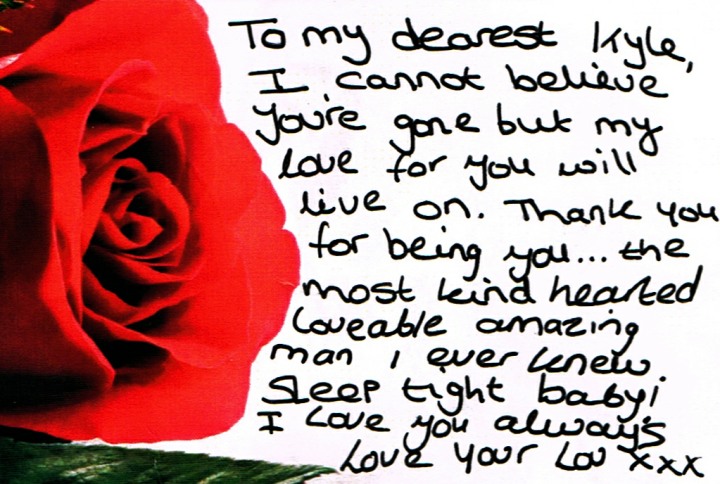 To my dearest Kyle,
I cannot believe
you're gone but my
love for you will
live on. Thank you
for being you... the
most kind hearted
loveable amazing
man I ever knew
Sleep tight baby!
I love you always
Love Your Lou xxx